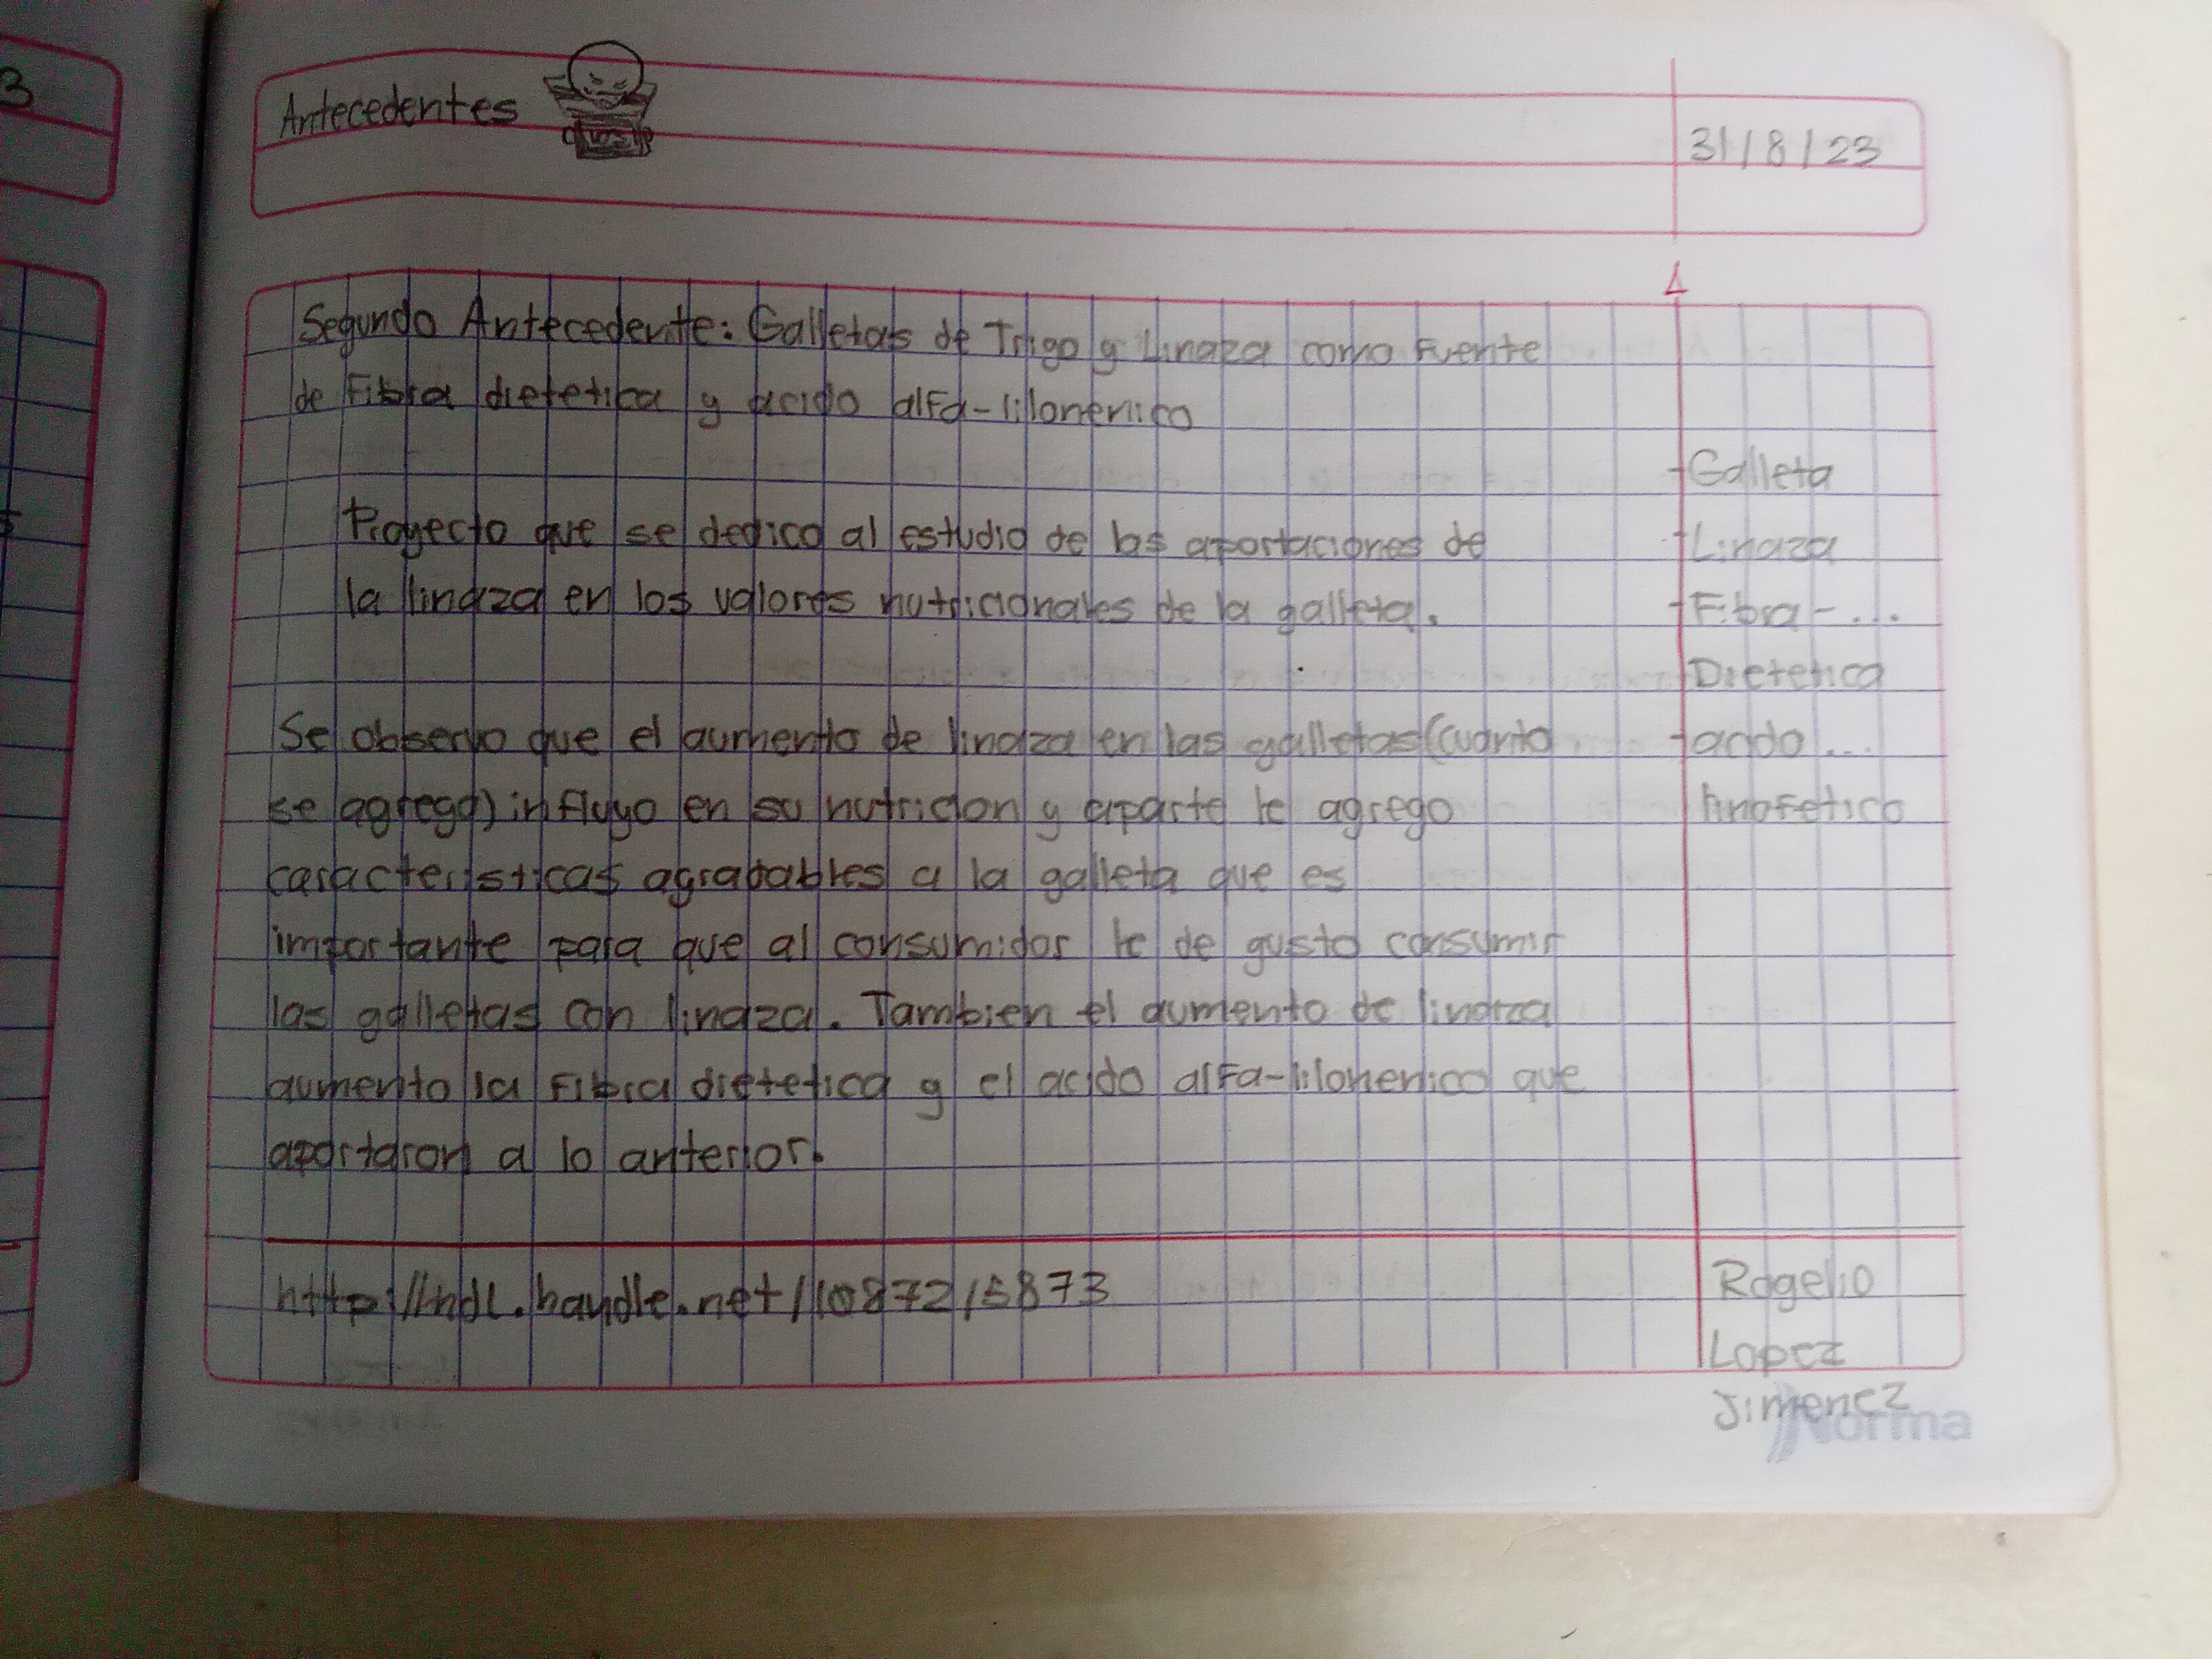 Antecedentes
31/8/23
Segundo Antecedente: Galletas de Trigo y Linaza como Fuente
de Fibra dietetica y acido alfa-lilonenico
Proyecto que se dedico al estudio de las aportaciones de
la linaza en los valores nutricionales de la galleta.
Se observo que el aumento de linaza en las galletas (cuanto
se agrego) influyo en su nutricion y aparte le agrego
caracteristicas agradables a la galleta que es
importante para que al consumidor le de gusto consumir
las galletas con linaza. Tambien el aumento de linaza
aumento la Fibra dietetica y el acido alfa-lilonenico que
aportaron a lo anterior.
-Galleta
-Linaza
-Fibra-...
Dietetica
-acido...
linofetico
http://hdl.handle.net/10872/5873
Rogelio
Lopez
Jimenez
Norma